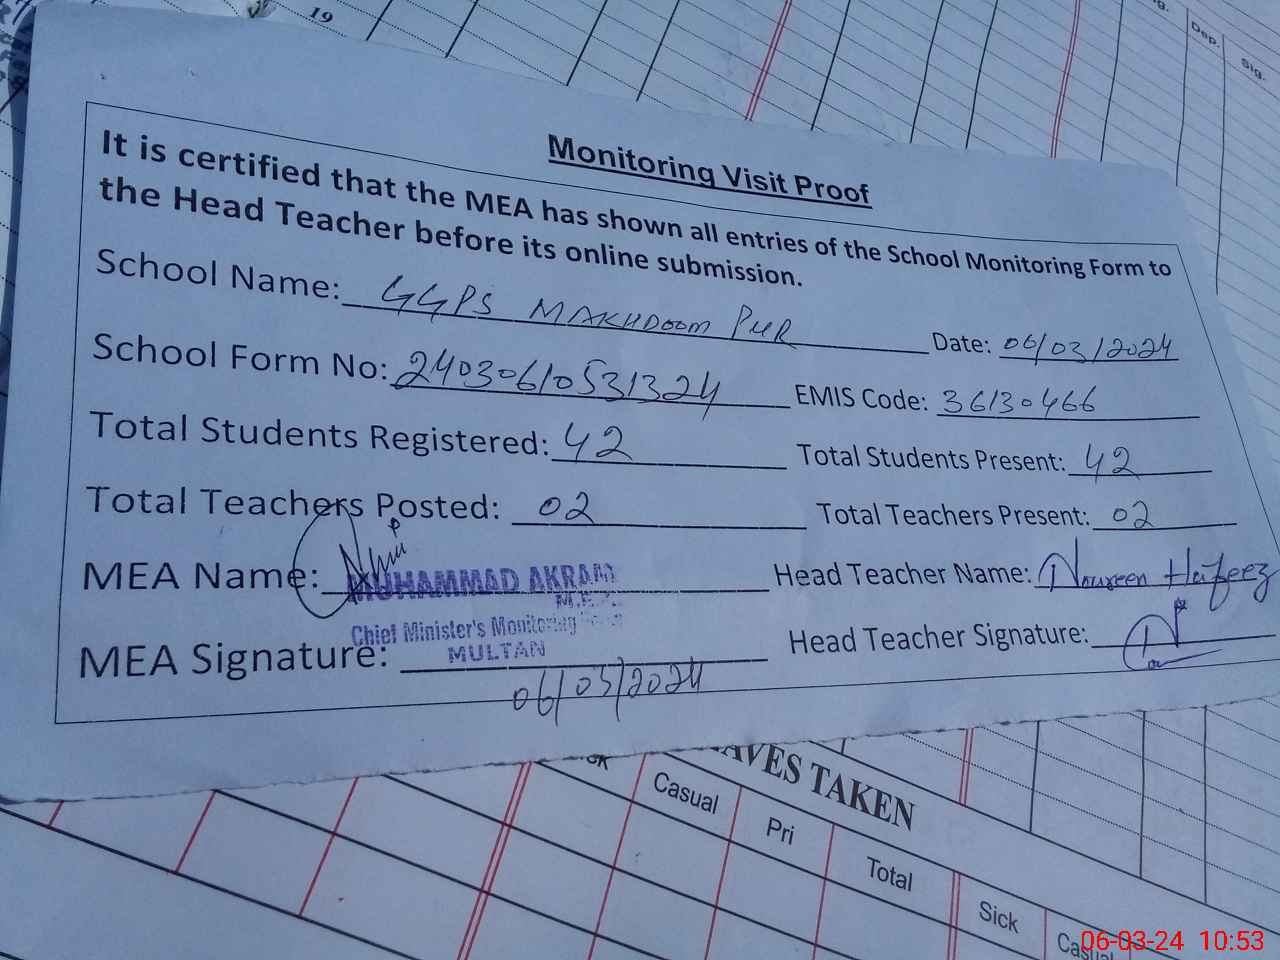 19
Dep.
Sig.
Monitoring Visit Proof
It is certified that the MEA has shown all entries of the School Monitoring Form to
the Head Teacher before its online submission.
School Name: GGPS MAKHDOOM PUR
Date: 06/03/2024
School Form No: 24030610531324
EMIS Code: 36130466
Total Students Registered: 42
Total Students Present: 42
Total Teachers Posted: 02
Total Teachers Present: 02
MEA Name: MUHAMMAD AKRAM
Head Teacher Name: Noureen Hafeez
Chief Minister's Monitoring
MEA Signature: MULTAN
Head Teacher Signature:
06/03/2024
AVES TAKEN
Casual
Pri
Total
Sick
Casual
06-03-24 10:53